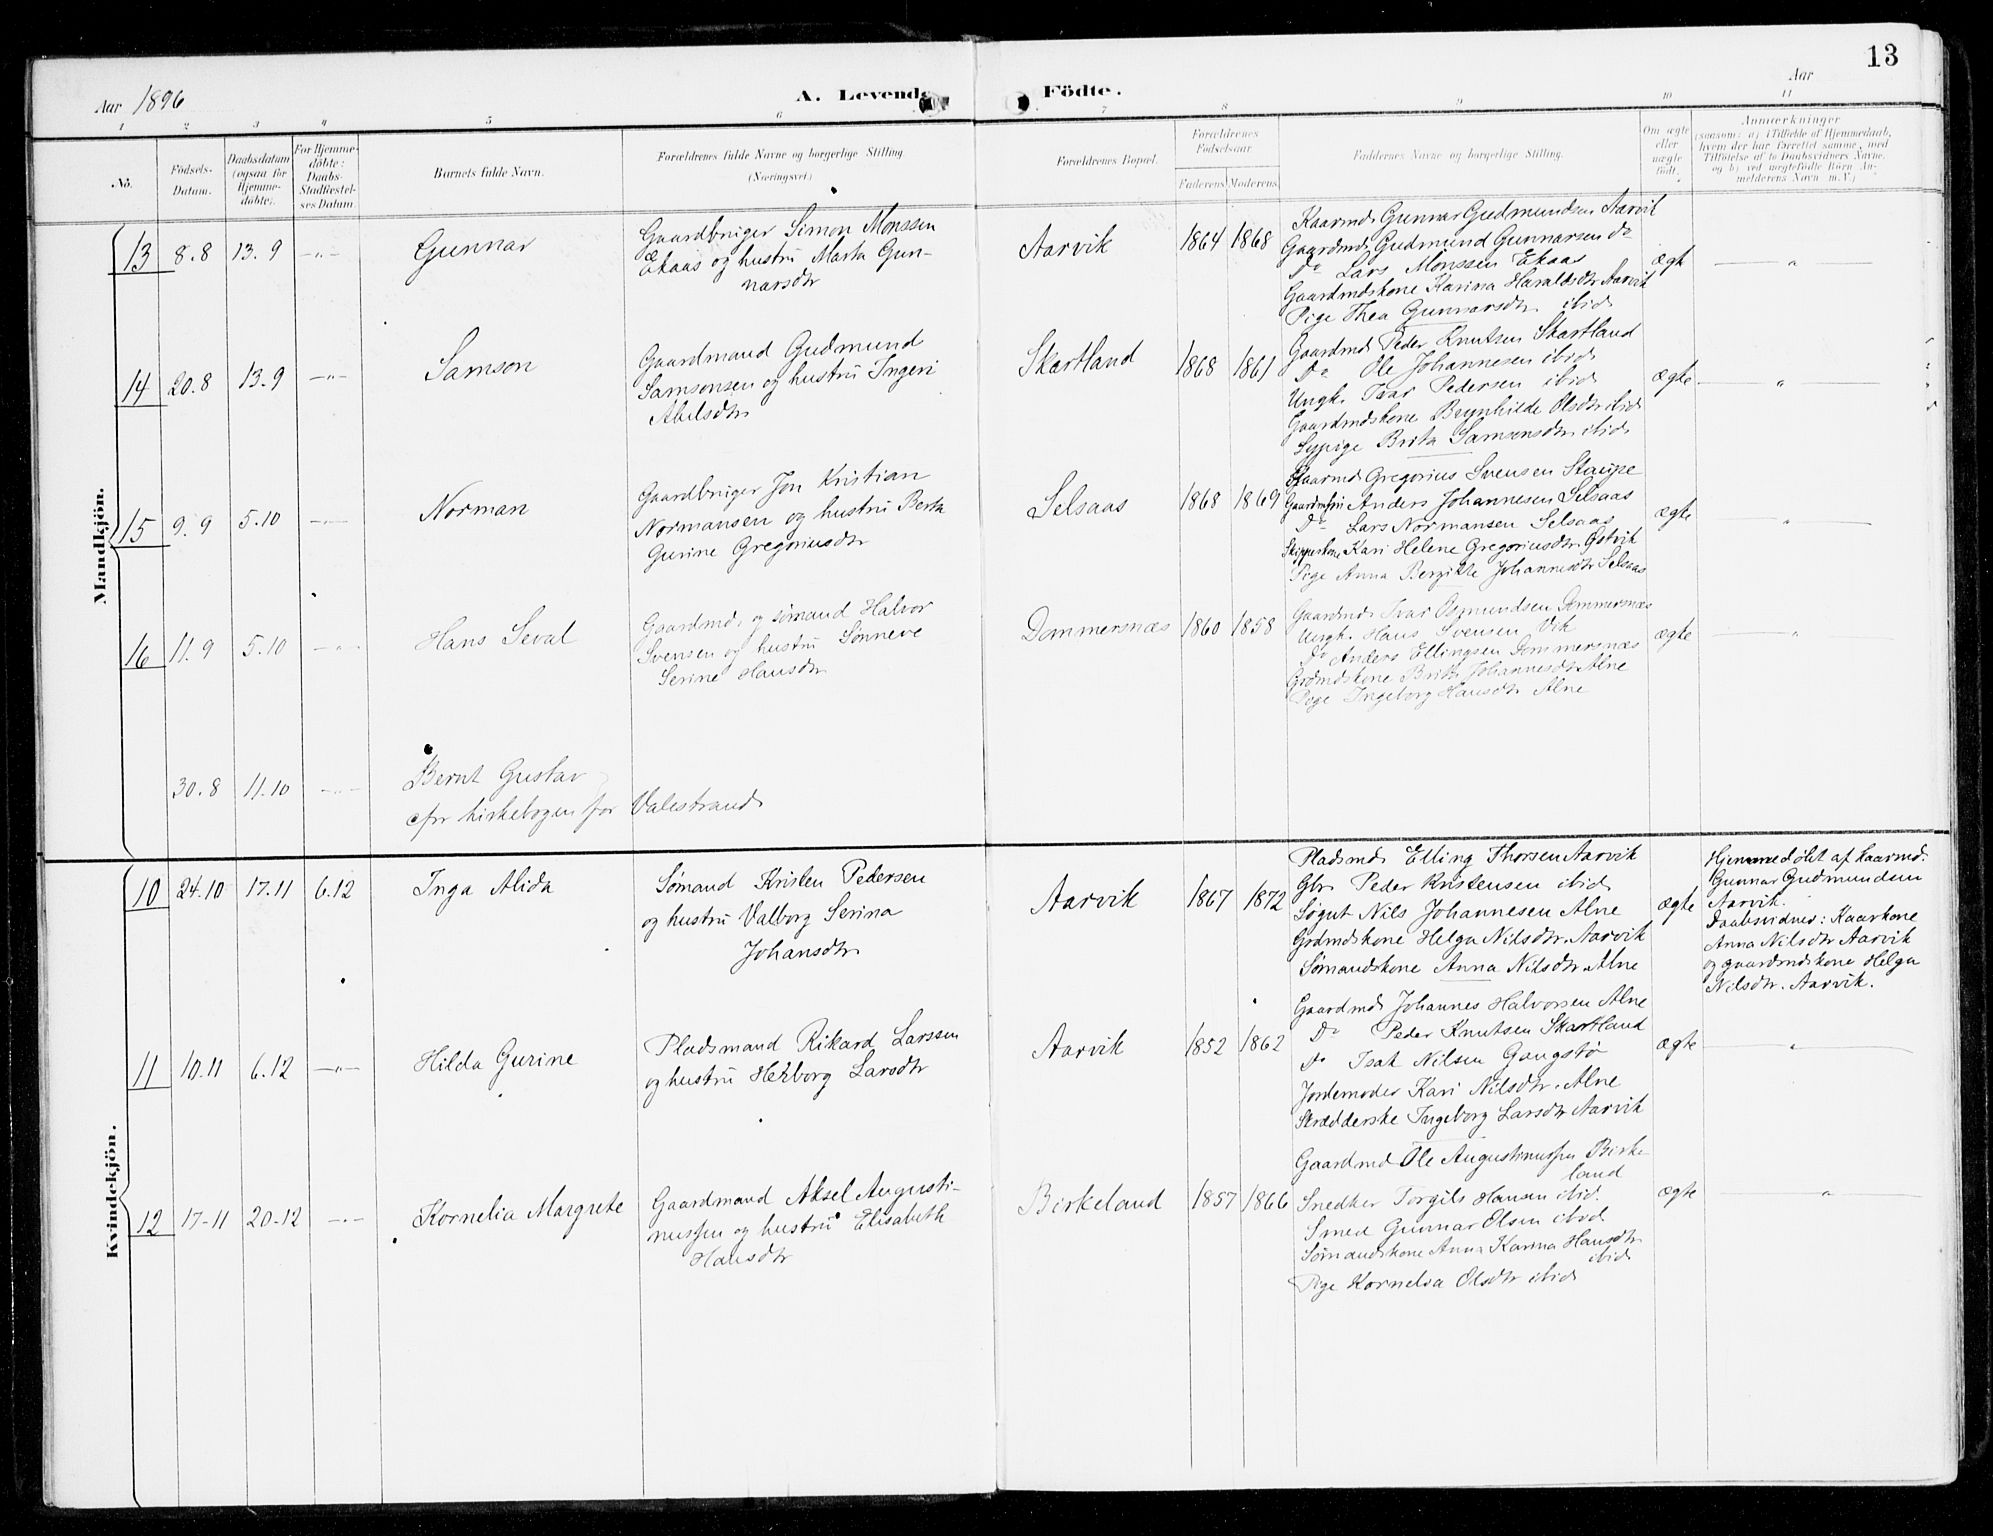 13
Aar 1896
A. Levende
Födte.
Aar
1 2 3 4 5 6 7 8 9 10 11
No.
Födsels-
Datum.
Daabsdatum
(ogsaa for
Hjemme-
döbte).
For Hjemme-
döbte:
Daabs-
Stadfæstel-
ses Datum.
Barnets fulde Navn.
Forældrenes fulde Navne og borgerlige Stilling
(Næringsvei.)
Forældrenes Bopæl.
Forældrenes
Födselsaar.
Faderens. Moderens.
Faddernes Navne og borgerlige Stilling.
Om ægte
eller
uægte
födt.
Anmærkninger
(saasom: a) i Tilfælde af Hjemmedaab,
hvem der har forrettet samme, med
Tilföielse af to Daabsvidners Navne,
og b) ved uægtefödte Börn An-
melderens Navn m. V.)
Mandkjön.
13 8.8 13.9 —"— Gunnar
Gaardbruger Simon Monssen
Ekaas og hustru Marta Gun-
narsdtr
Aarvik 1864 1868
Kaarmd. Gunnar Gudmundsen Aarvik
Gaardmd. Gudmund Gunnarsen do
Do Lars Monssen Ekaas
Gaardmdskone Karina Haraldsdtr Aarvik
Pige Thea Gunnarsdtr. ibid.
ægte —"—
14 20.8 13.9 —"— Samson
Gaardmand Gudmund
Samsonsen og hustru Ingeri
Abelsdtr.
Skartland 1868 1861
Gaardmd. Peder Knutsen Skartland
Do Ole Johannesen ibid.
Ungk. Ivar Pedersen ibid.
Gaardmdskone Brynhilde Olsdtr ibid.
Sypige Brita Samsonsdtr. ibid.
ægte —"—
15 9.9 5.10 —"— Norman
Gaardbruger Jon Kristian
Normansen og hustru Berta
Gurine Gregoriusdtr
Selsaas 1868 1869
Kaarmd. Gregorius Svensen Staupe
Anders Johannesen Selsaas
Do Lars Normansen Selsaas
Skipperkone Kari Helene Gregoriusdtr.
Pige Anna Bergitte Johannesdtr Selsaas
ægte —"—
16 11.9 5.10 —"— Hans Seval
Gaardmd. og sømand Halvor
Svensen og hustru Sønneve
Serine Hansdtr
Dommersnæs 1860 1858
Gaardmd. Ivar Osmundsen Dommersnæs
Ungk. Hans Svensen Vik
Do Anders Ellingsen Dommersnæs
Grdmdskone Brita Johannesdtr Alne
Pige Ingeborg Hansdtr Alne
ægte —"—
30.8 11.10 —"— Bernt Gustav
cfr kirkebogen for Valestrand.
Kvindekjön.
10 24.10 17.11 6.12 Inga Alida
Sømand Kristen Pedersen
og hustru Valborg Serina
Johansdtr.
Aarvik 1867 1872
Pladsmd. Elling Thorsen Aarvik
Gbr. Peder Kristensen ibid.
Søgut Nils Johannesen Alne
Grdmdskone Helga Nilsdtr. Aarvik
Sømandskone Anna Nilsdtr. Alne
ægte
Hjemmedøbt af kaarmd.
Gunnar Gudmundsen
Aarvik.
Daabsvidner: Kaarkone
Anna Nilsdtr Aarvik
og gaardmdskone Helga
Nilsdtr. Aarvik.
11 10.11 6.12 —"— Hilda Gurine
Pladsmand Rikard Larssen
og hustru Herborg Larsdtr
Aarvik 1852 1862
Gaardmd. Johannes Halvorsen Alne
Do Peder Knutsen Skartland
Do Isak Nilsen Gangstø
Jordemoder Kari Nilsdtr. Alne
Skrædderske Ingeborg Larsdtr Aarvik
ægte —"—
12 17-11 20-12 —"— Kornelia Margrete
Gaardmand Aksel Augusti-
nussen og hustru Elisabeth
Hansdtr
Birkeland 1857 1866
Gaardmd Ole Augustinussen Birke-
land
Snedker Torgils Hansen ibid.
Smed Gunnar Olsen ibid
Sømandskone Anna Karina Hansdtr
ibid.
Pige Kornelia Olsdtr ibid
ægte —"—